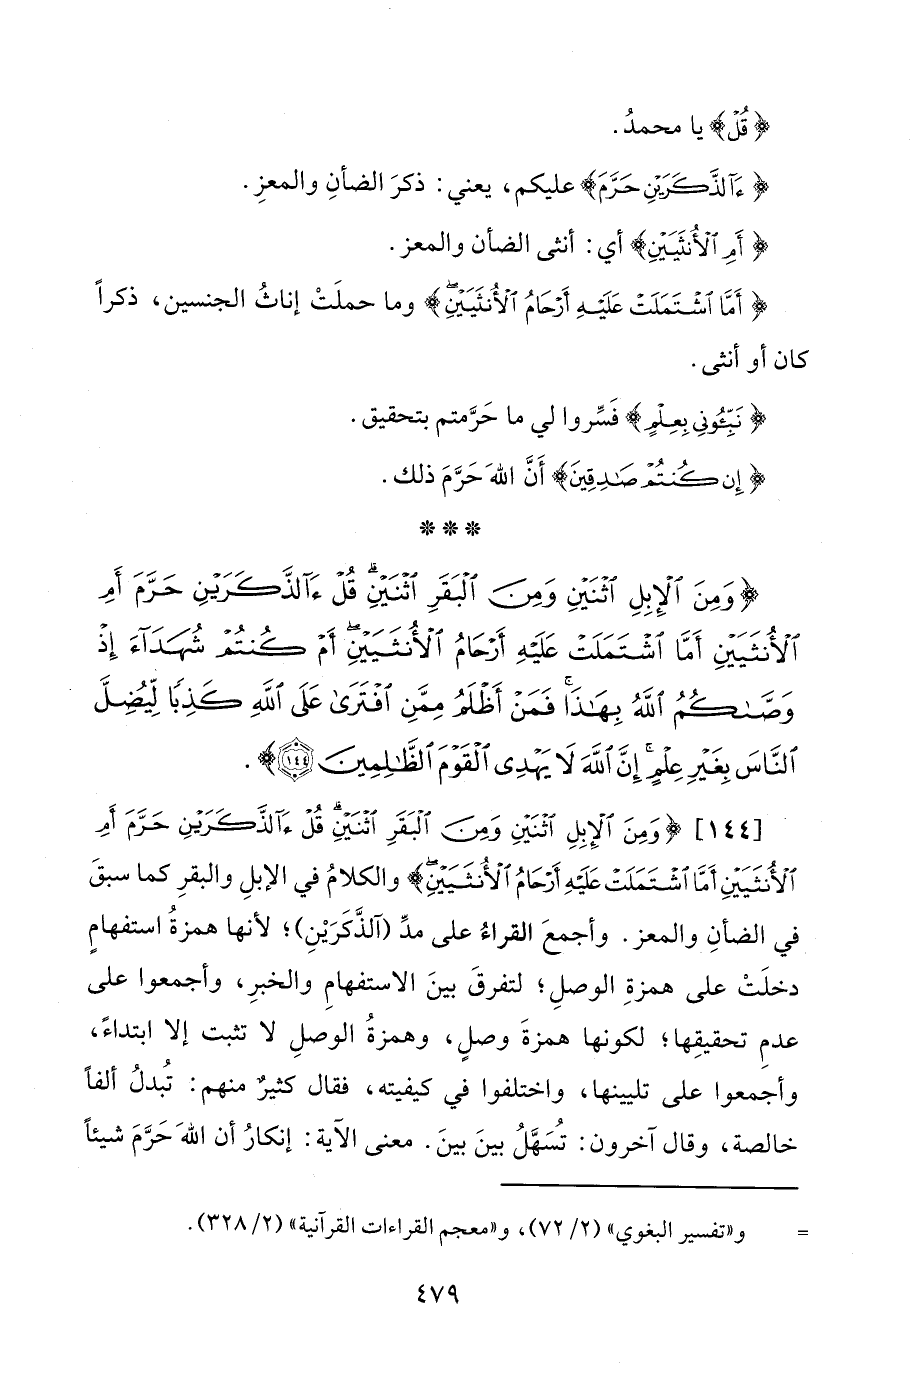 ﴿قُلْ﴾ يا محمدُ.
﴿ءَآلذَّكَرَيْنِ حَرَّمَ﴾ عليكم، يعني: ذكرَ الضأنِ والمعزِ.
﴿أَمِ ٱلْأُنثَيَيْنِ﴾ أي: أنثى الضأن والمعز.
﴿أَمَّا ٱشْتَمَلَتْ عَلَيْهِ أَرْحَامُ ٱلْأُنثَيَيْنِۖ﴾ وما حملَتْ إناثُ الجنسين، ذكراً
كان أو أنثى.
﴿نَبِّـُٔونِى بِعِلْمٍ﴾ فَسِّروا لي ما حَرَّمتم بتحقيق.
﴿إِن كُنتُمْ صَـٰدِقِينَ﴾ أَنَّ اللهَ حَرَّمَ ذلك.
***
﴿وَمِنَ ٱلْإِبِلِ ٱثْنَيْنِ وَمِنَ ٱلْبَقَرِ ٱثْنَيْنِۗ قُلْ ءَآلذَّكَرَيْنِ حَرَّمَ أَمِ
ٱلْأُنثَيَيْنِ أَمَّا ٱشْتَمَلَتْ عَلَيْهِ أَرْحَامُ ٱلْأُنثَيَيْنِۖ أَمْ كُنتُمْ شُهَدَآءَ إِذْ
وَصَّىٰكُمُ ٱللَّهُ بِهَـٰذَاۚ فَمَنْ أَظْلَمُ مِمَّنِ ٱفْتَرَىٰ عَلَى ٱللَّهِ كَذِبًا لِّيُضِلَّ
ٱلنَّاسَ بِغَيْرِ عِلْمٍۚ إِنَّ ٱللَّهَ لَا يَهْدِى ٱلْقَوْمَ ٱلظَّـٰلِمِينَ ١٤٤﴾.
[١٤٤] ﴿وَمِنَ ٱلْإِبِلِ ٱثْنَيْنِ وَمِنَ ٱلْبَقَرِ ٱثْنَيْنِۗ قُلْ ءَآلذَّكَرَيْنِ حَرَّمَ أَمِ
ٱلْأُنثَيَيْنِ أَمَّا ٱشْتَمَلَتْ عَلَيْهِ أَرْحَامُ ٱلْأُنثَيَيْنِۖ﴾ والكلامُ في الإبلِ والبقرِ كما سبقَ
في الضأنِ والمعز. وأجمعَ القراءُ على مدِّ (آلذَّكَرَيْنِ)؛ لأنها همزةُ استفهامٍ
دخلَتْ على همزةِ الوصلِ؛ لتفرقَ بينَ الاستفهامِ والخبرِ، وأجمعوا على
عدمِ تحقيقِها؛ لكونها همزةَ وصلٍ، وهمزةُ الوصلِ لا تثبت إلا ابتداءً،
وأجمعوا على تليينها، واختلفوا في كيفيته، فقال كثيرٌ منهم: تُبدلُ ألفاً
خالصة، وقال آخرون: تُسَهَّلُ بينَ بينَ. معنى الآية: إنكارُ أن اللهَ حَرَّمَ شيئاً
= و«تفسير البغوي» (٢/ ٧٢)، و«معجم القراءات القرآنية» (٢/ ٣٢٨).
٤٧٩